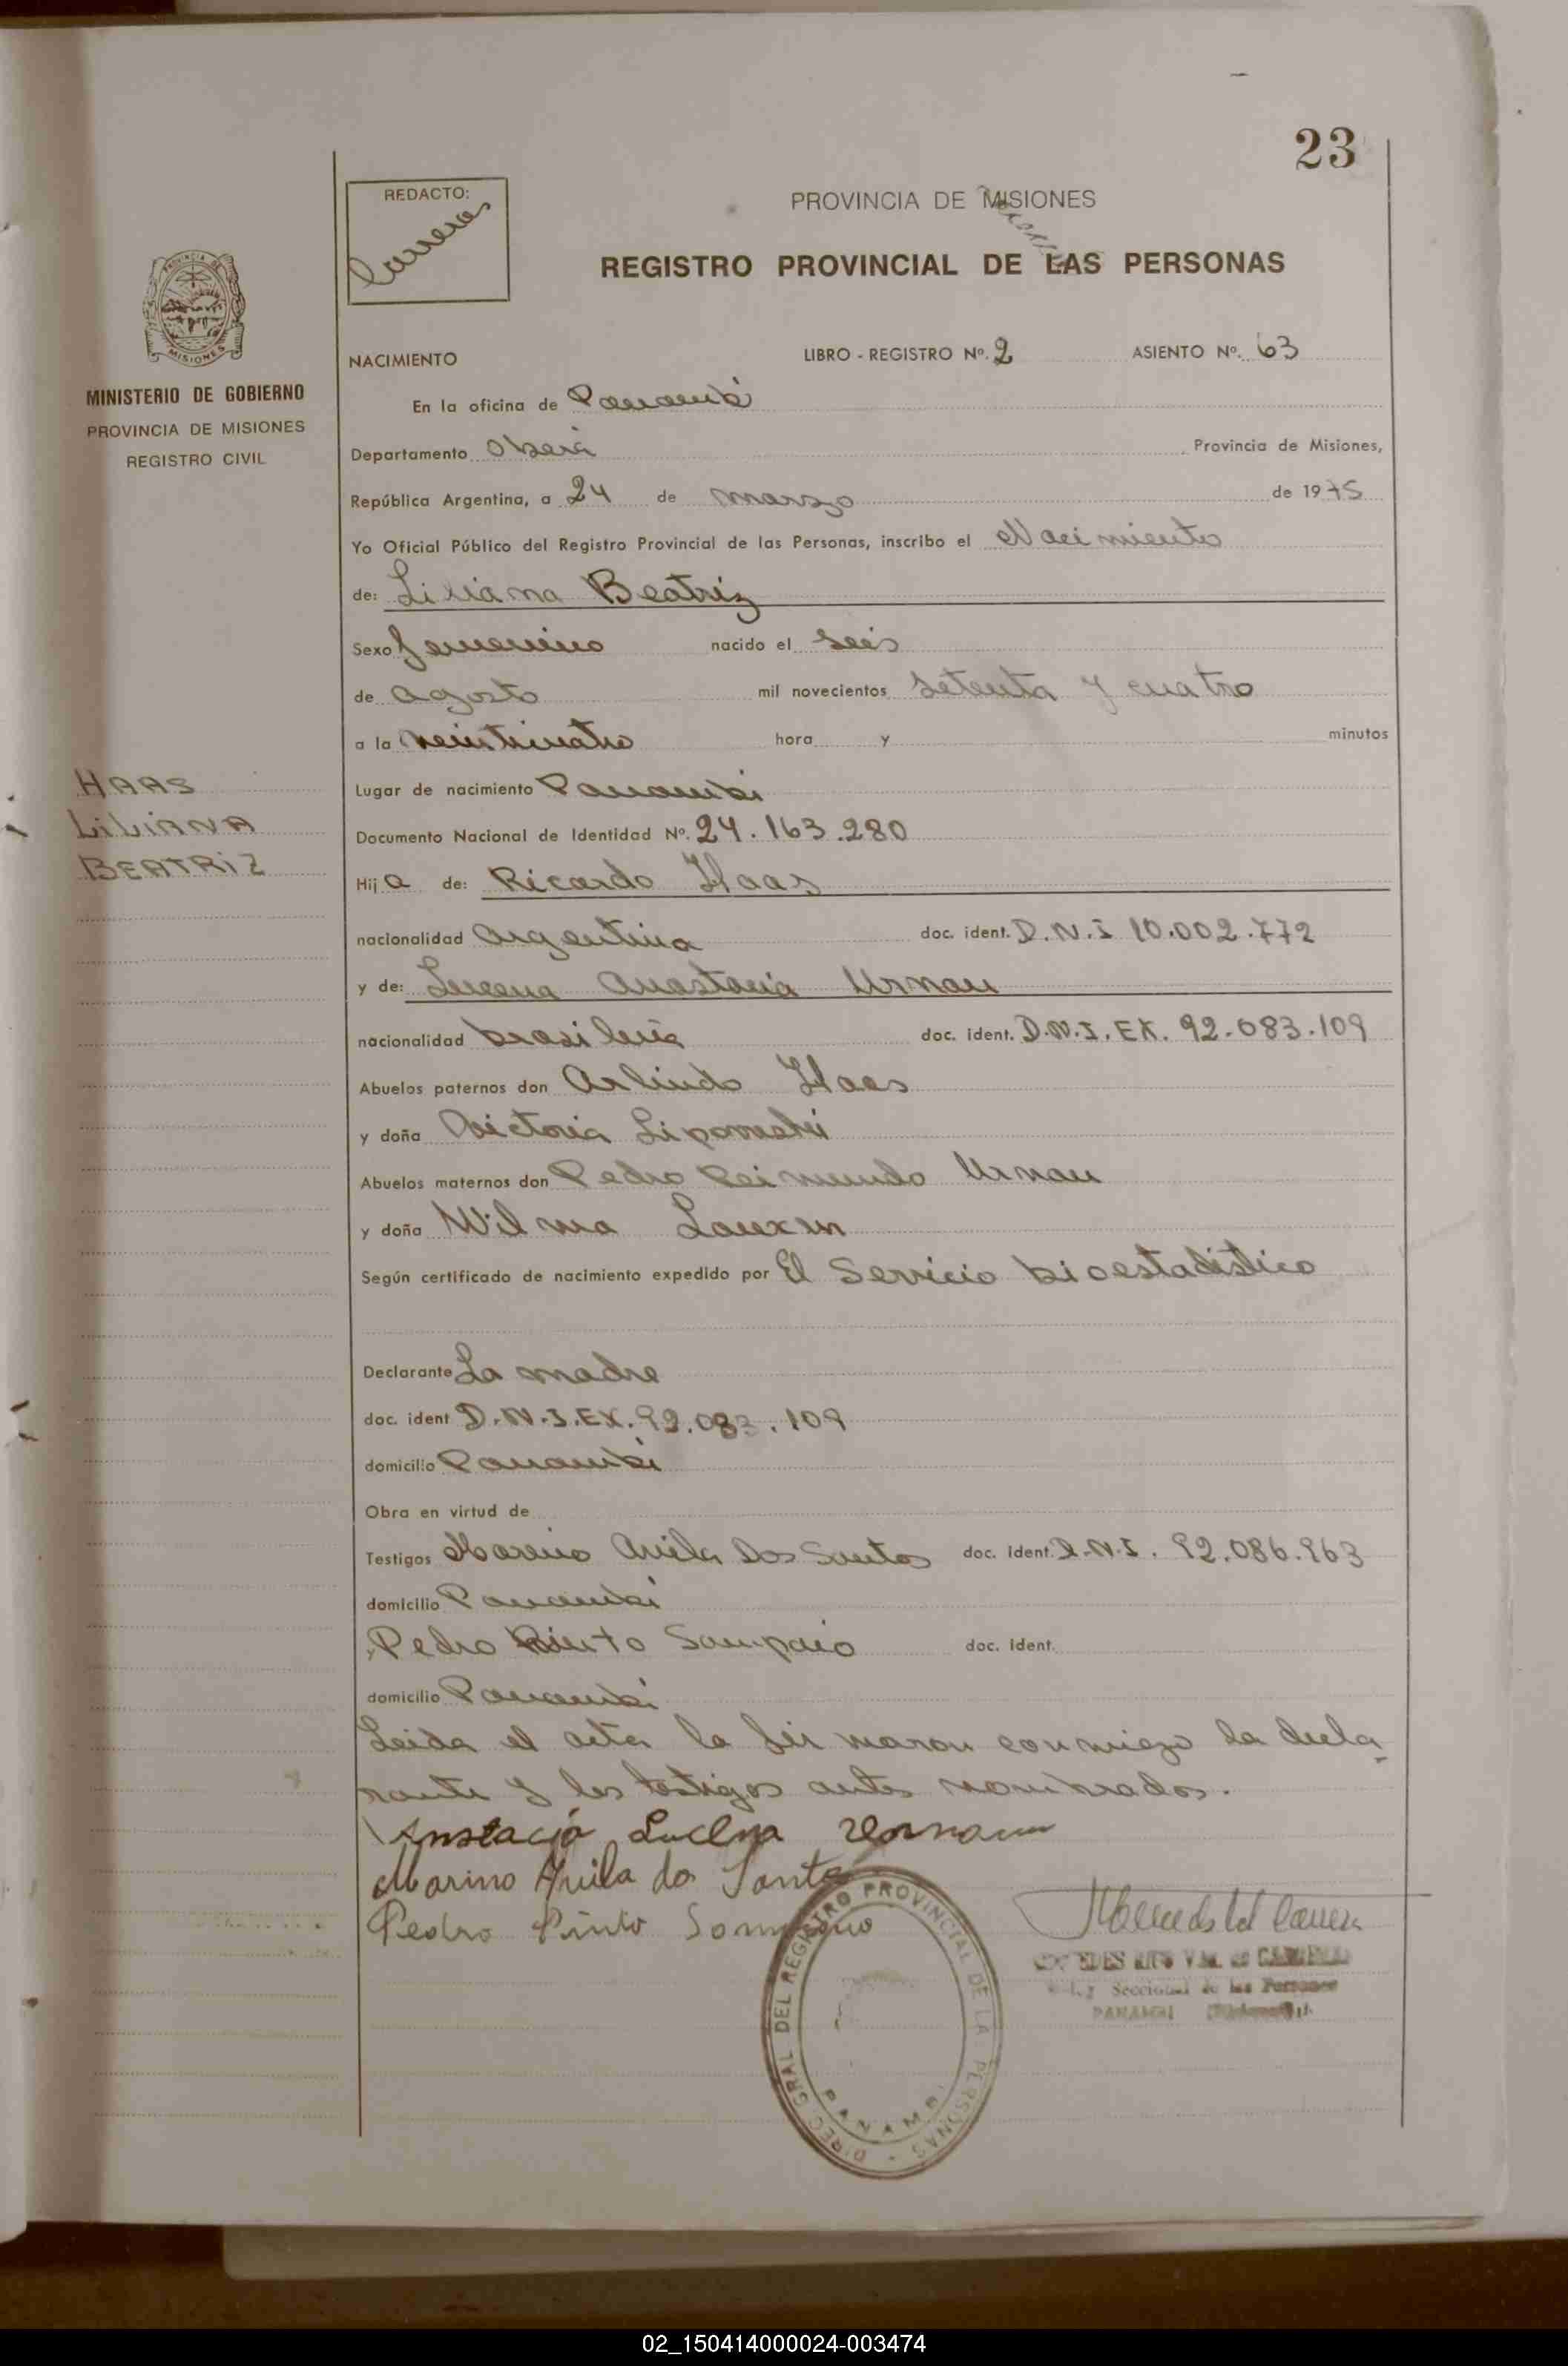 23
REDACTO:
Carrera
PROVINCIA DE MISIONES
REGISTRO PROVINCIAL DE LAS PERSONAS
MISIONES
MINISTERIO DE GOBIERNO
PROVINCIA DE MISIONES
REGISTRO CIVIL
NACIMIENTO LIBRO - REGISTRO Nº. 2 ASIENTO Nº. 63
En la oficina de Panambí
Departamento Oberá Provincia de Misiones,
República Argentina, a 24 de marzo de 1975
Yo Oficial Público del Registro Provincial de las Personas, inscribo el Nacimiento
de: Liliana Beatriz
Sexo femenino nacido el seis
de agosto mil novecientos setenta y cuatro
a la veinticuatro hora y minutos
Lugar de nacimiento Panambí
HAAS
LILIANA
BEATRIZ
Documento Nacional de Identidad Nº. 24.163.280
Hija de: Ricardo Haas
nacionalidad argentina doc. ident. D.N.I 10.002.772
y de: Lucena Anastacia Urnau
nacionalidad brasileña doc. ident. D.N.I. EX. 92.083.109
Abuelos paternos don Arlindo Haas
y doña Victoria
Abuelos maternos don Pedro Reimundo Urnau
y doña Wilma
Según certificado de nacimiento expedido por El Servicio bioestadístico
Declarante La madre
doc. ident D.N.I.EX. 92.083.109
domicilio Panambí
Obra en virtud de
Testigos Marino Avila Dos Santos doc. Ident. D.N.I. 92.086.963
domicilio Panambí
Pedro Pinto Sampaio doc. Ident.
domicilio Panambí
Leida el acta la firmaron conmigo la decla
rante y los testigos antes nombrados.
Anstacia Lucena
Marino Avila do Santo
Pedro Pinto
DIREC. GRAL DEL REGISTRO PROVINCIAL DE LA PERSONAS
PANAMBI
Seccional de las Personas
PANAMBI
02_150414000024-003474